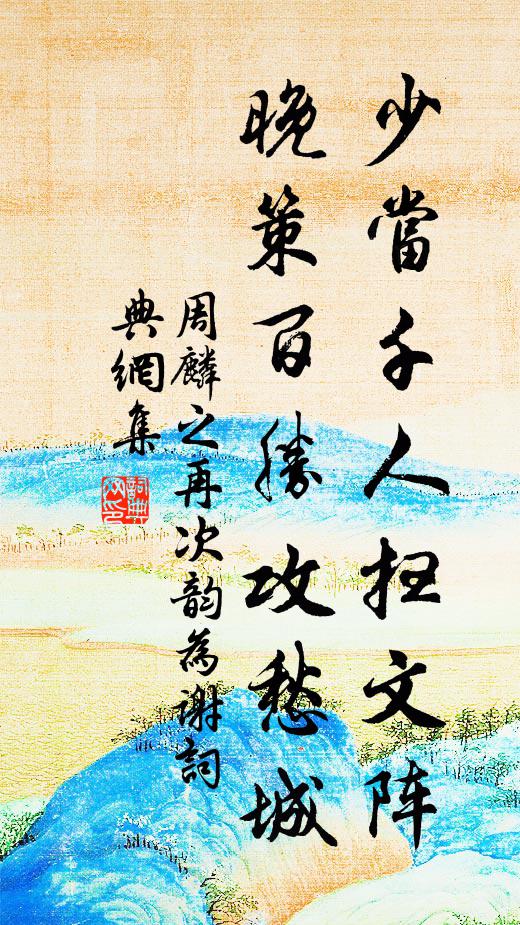 少當千人扫文阵
晚策百勝攻愁城
周麟之再次韵為谢詞
典網集
詞典